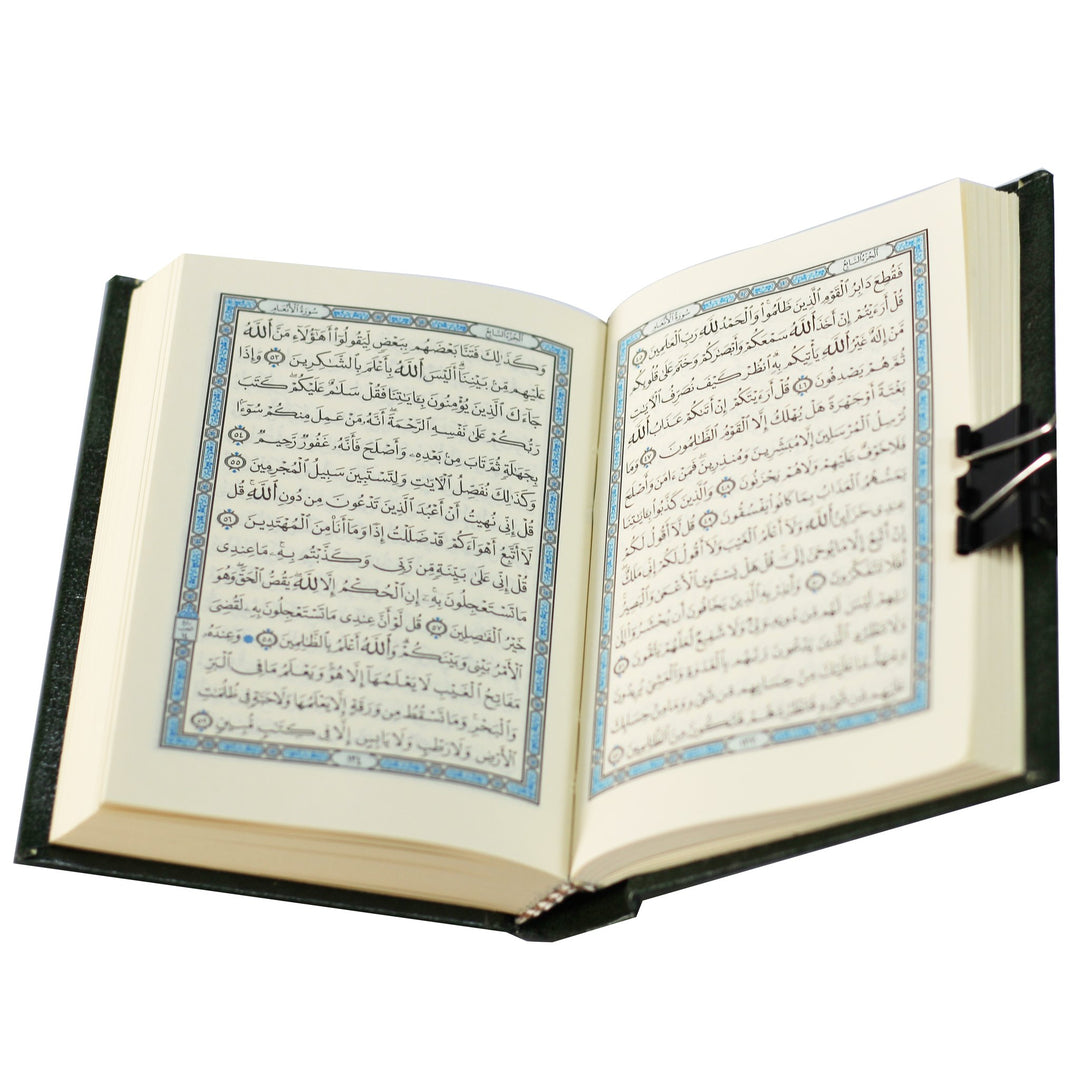 الجزء السابع
سورة الأنعام
فَقُطِعَ دَابِرُ ٱلْقَوْمِ ٱلَّذِينَ ظَلَمُوا۟ وَٱلْحَمْدُ لِلَّهِ رَبِّ ٱلْعَٰلَمِينَ ٤٥
قُلْ أَرَءَيْتُمْ إِنْ أَخَذَ ٱللَّهُ سَمْعَكُمْ وَأَبْصَٰرَكُمْ وَخَتَمَ عَلَىٰ قُلُوبِكُم
مَّنْ إِلَٰهٌ غَيْرُ ٱللَّهِ يَأْتِيكُم بِهِ ٱنظُرْ كَيْفَ نُصَرِّفُ ٱلْءَايَٰتِ
ثُمَّ هُمْ يَصْدِفُونَ ٤٦ قُلْ أَرَءَيْتَكُمْ إِنْ أَتَىٰكُمْ عَذَابُ ٱللَّهِ
بَغْتَةً أَوْ جَهْرَةً هَلْ يُهْلَكُ إِلَّا ٱلْقَوْمُ ٱلظَّٰلِمُونَ ٤٧ وَمَا
نُرْسِلُ ٱلْمُرْسَلِينَ إِلَّا مُبَشِّرِينَ وَمُنذِرِينَ فَمَنْ ءَامَنَ وَأَصْلَحَ
فَلَا خَوْفٌ عَلَيْهِمْ وَلَا هُمْ يَحْزَنُونَ ٤٨ وَٱلَّذِينَ كَذَّبُوا۟ بِـَٔايَٰتِنَا
يَمَسُّهُمُ ٱلْعَذَابُ بِمَا كَانُوا۟ يَفْسُقُونَ ٤٩ قُل لَّآ أَقُولُ لَكُمْ
عِندِى خَزَآئِنُ ٱللَّهِ وَلَآ أَعْلَمُ ٱلْغَيْبَ وَلَآ أَقُولُ لَكُمْ إِنِّى مَلَكٌ
إِنْ أَتَّبِعُ إِلَّا مَا يُوحَىٰٓ إِلَىَّ قُلْ هَلْ يَسْتَوِى ٱلْأَعْمَىٰ وَٱلْبَصِيرُ
أَفَلَا تَتَفَكَّرُونَ ٥٠ وَأَنذِرْ بِهِ ٱلَّذِينَ يَخَافُونَ أَن يُحْشَرُوٓا۟ إِلَىٰ
رَبِّهِمْ لَيْسَ لَهُم مِّن دُونِهِ وَلِىٌّ وَلَا شَفِيعٌ لَّعَلَّهُمْ يَتَّقُونَ ٥١
وَلَا تَطْرُدِ ٱلَّذِينَ يَدْعُونَ رَبَّهُم بِٱلْغَدَوٰةِ وَٱلْعَشِىِّ يُرِيدُونَ
وَجْهَهُ مَا عَلَيْكَ مِنْ حِسَابِهِم مِّن شَىْءٍ وَمَا مِنْ حِسَابِكَ
عَلَيْهِم مِّن شَىْءٍ فَتَطْرُدَهُمْ فَتَكُونَ مِنَ ٱلظَّٰلِمِينَ ٥٢
١٣٣
الجزء السابع
سورة الأنعام
وَكَذَٰلِكَ فَتَنَّا بَعْضَهُم بِبَعْضٍ لِّيَقُولُوٓا۟ أَهَٰٓؤُلَآءِ مَنَّ ٱللَّهُ
عَلَيْهِم مِّنۢ بَيْنِنَآ أَلَيْسَ ٱللَّهُ بِأَعْلَمَ بِٱلشَّٰكِرِينَ ٥٣ وَإِذَا
جَآءَكَ ٱلَّذِينَ يُؤْمِنُونَ بِـَٔايَٰتِنَا فَقُلْ سَلَٰمٌ عَلَيْكُمْ كَتَبَ
رَبُّكُمْ عَلَىٰ نَفْسِهِ ٱلرَّحْمَةَ أَنَّهُ مَنْ عَمِلَ مِنكُمْ سُوٓءًۢا
بِجَهَٰلَةٍ ثُمَّ تَابَ مِنۢ بَعْدِهِ وَأَصْلَحَ فَأَنَّهُ غَفُورٌ رَّحِيمٌ ٥٤
وَكَذَٰلِكَ نُفَصِّلُ ٱلْءَايَٰتِ وَلِتَسْتَبِينَ سَبِيلُ ٱلْمُجْرِمِينَ ٥٥
قُلْ إِنِّى نُهِيتُ أَنْ أَعْبُدَ ٱلَّذِينَ تَدْعُونَ مِن دُونِ ٱللَّهِ قُل
لَّآ أَتَّبِعُ أَهْوَآءَكُمْ قَدْ ضَلَلْتُ إِذًا وَمَآ أَنَا۠ مِنَ ٱلْمُهْتَدِينَ ٥٦
قُلْ إِنِّى عَلَىٰ بَيِّنَةٍ مِّن رَّبِّى وَكَذَّبْتُم بِهِ مَا عِندِى
مَا تَسْتَعْجِلُونَ بِهِ إِنِ ٱلْحُكْمُ إِلَّا لِلَّهِ يَقُصُّ ٱلْحَقَّ وَهُوَ
خَيْرُ ٱلْفَٰصِلِينَ ٥٧ قُل لَّوْ أَنَّ عِندِى مَا تَسْتَعْجِلُونَ بِهِ لَقُضِىَ
ٱلْأَمْرُ بَيْنِى وَبَيْنَكُمْ وَٱللَّهُ أَعْلَمُ بِٱلظَّٰلِمِينَ ٥٨ وَعِندَهُ
مَفَاتِحُ ٱلْغَيْبِ لَا يَعْلَمُهَآ إِلَّا هُوَ وَيَعْلَمُ مَا فِى ٱلْبَرِّ
وَٱلْبَحْرِ وَمَا تَسْقُطُ مِن وَرَقَةٍ إِلَّا يَعْلَمُهَا وَلَا حَبَّةٍ فِى ظُلُمَٰتِ
ٱلْأَرْضِ وَلَا رَطْبٍ وَلَا يَابِسٍ إِلَّا فِى كِتَٰبٍ مُّبِينٍ ٥٩
١٣٤